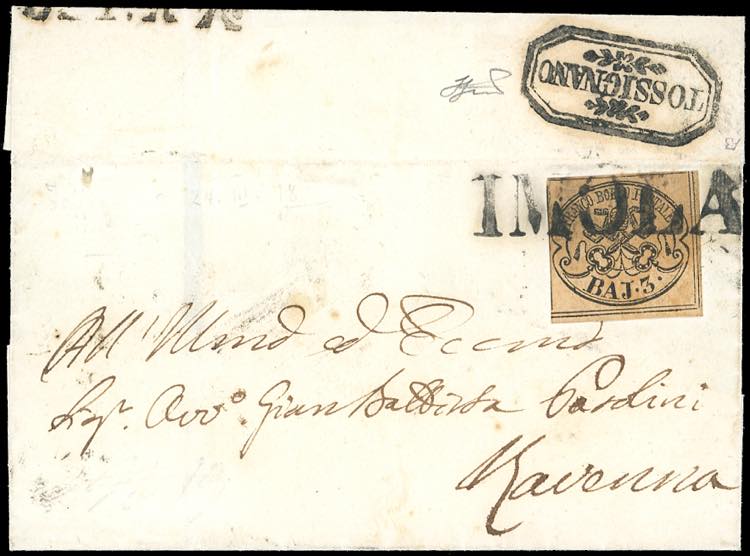 TOSSIGNANO
IMOLA
FRANCO BOLLO POSTALE
BAJ. 3.
All' Illmo ed Eccmo
Sigr. Avvo. Gian Battista Pasolini
Ravenna